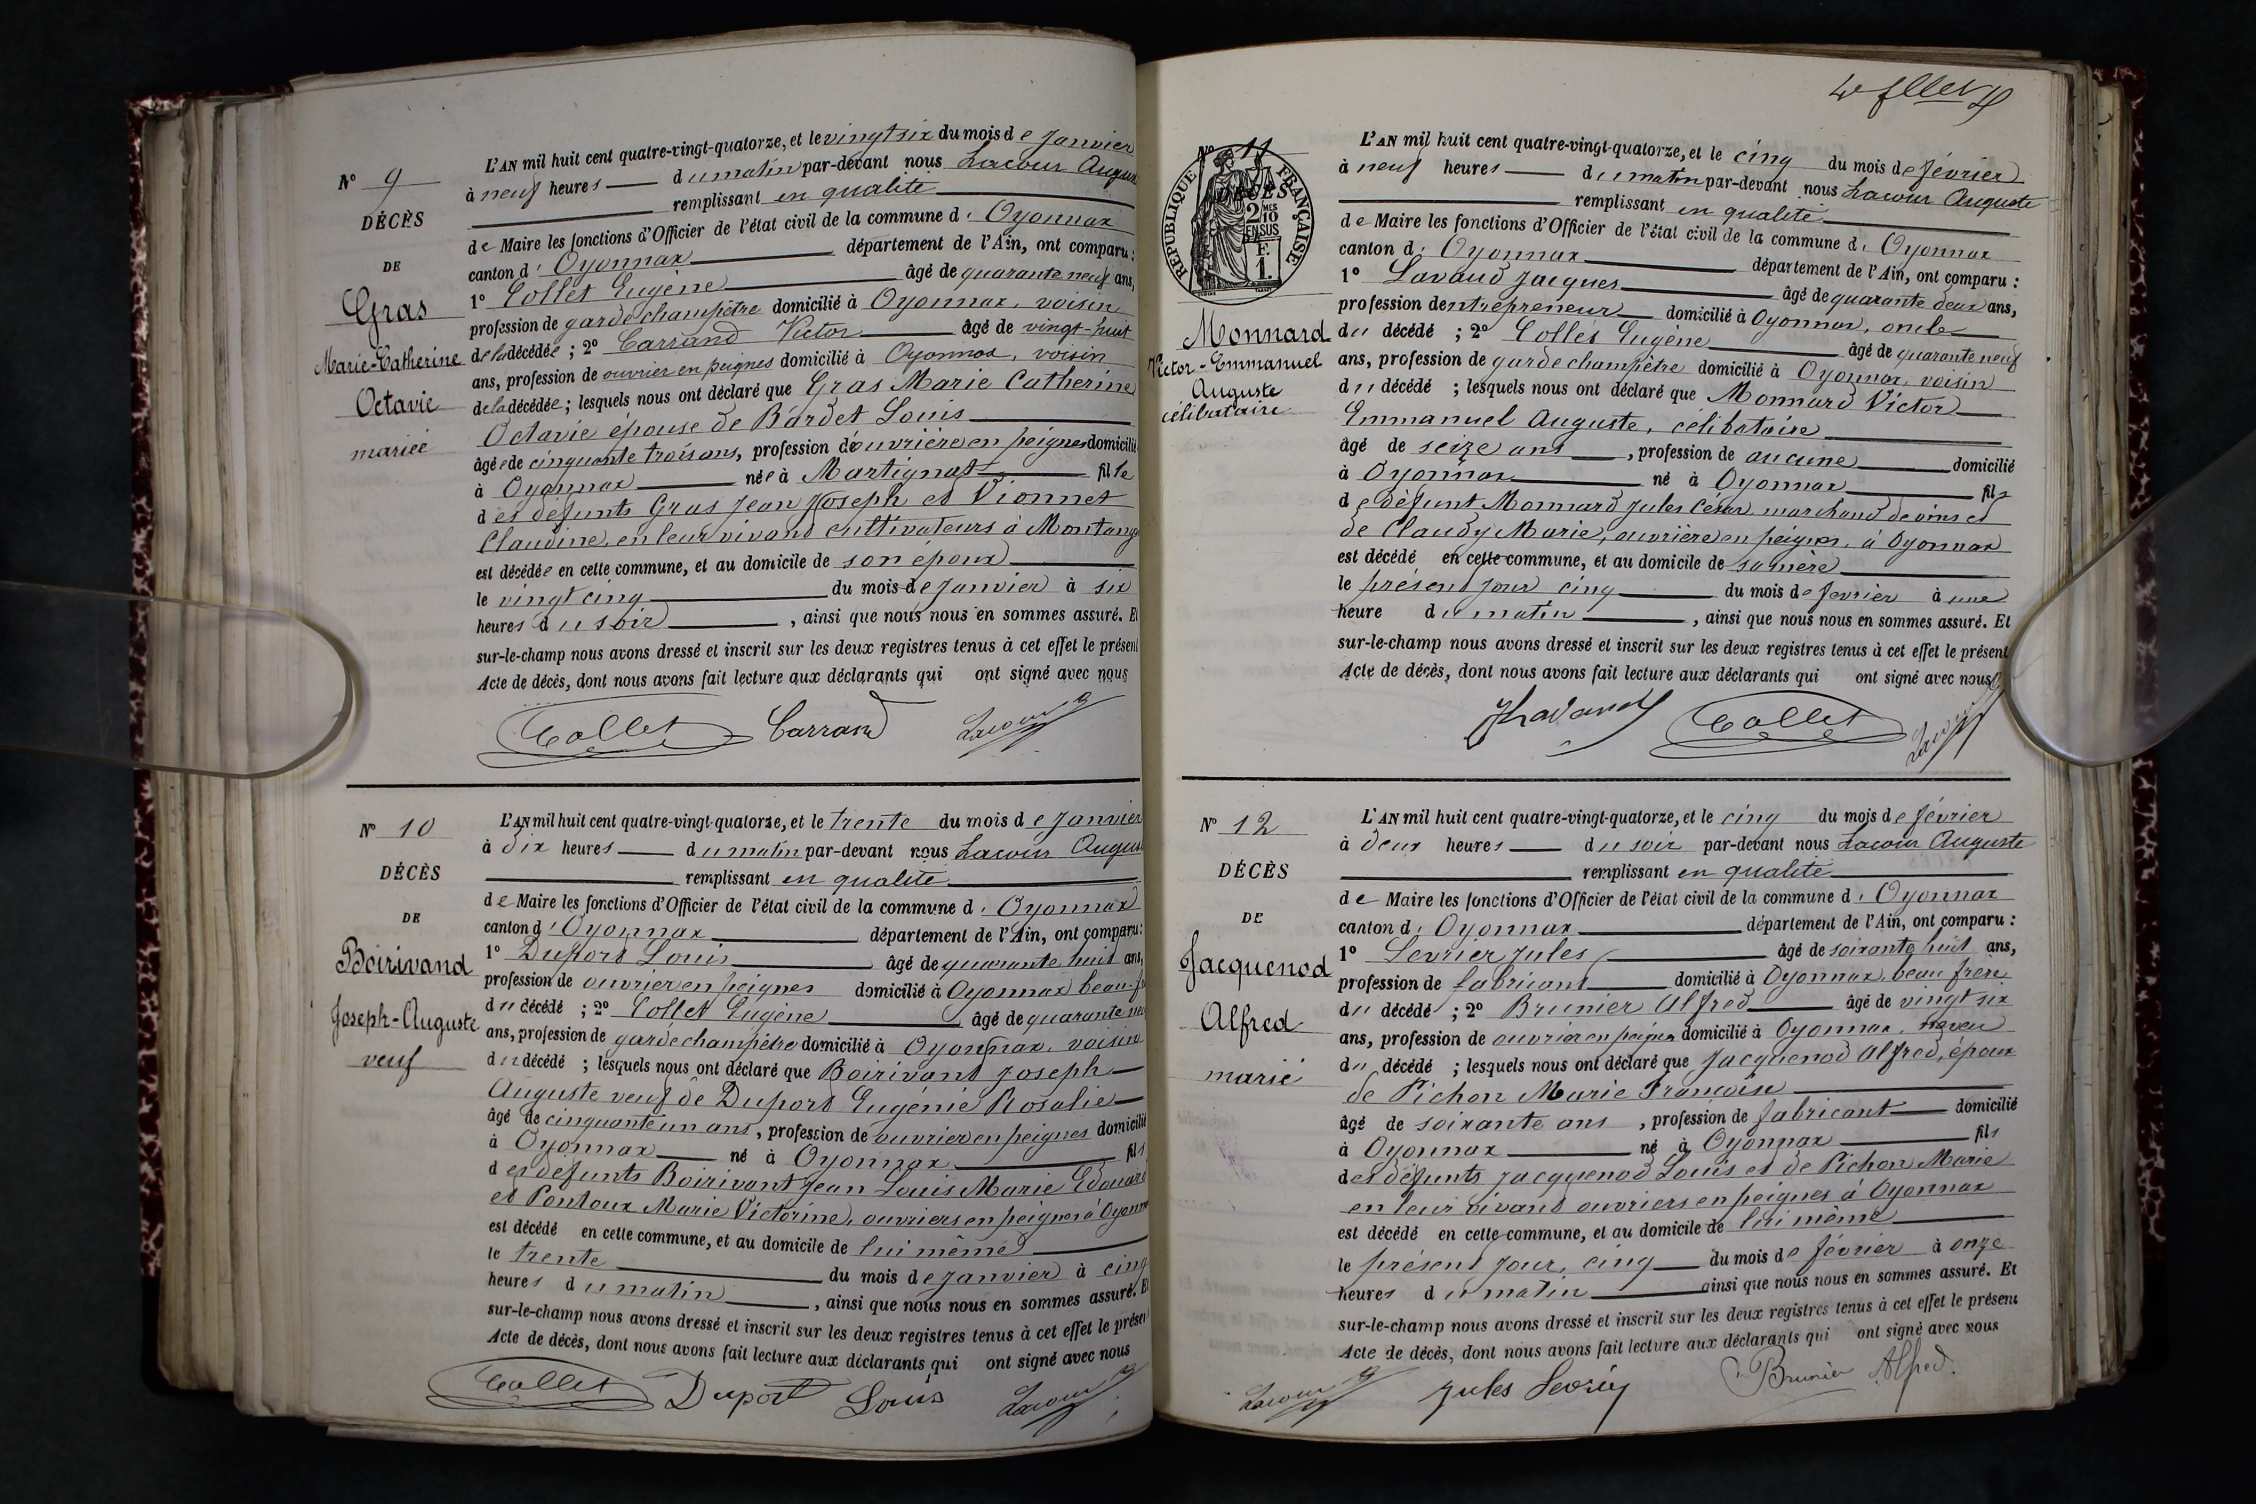 Nº 9
DÉCÈS
DE
Gras
Marie-Catherine
Octavie
mariée
L'AN mil huit cent quatre-vingt-quatorze, et le vingt six du mois de janvier
à neuf heures du matin par-devant nous Lacour August
remplissant en qualité
de Maire les fonctions d'Officier de l'état civil de la commune d' Oyonnax
canton d' Oyonnax département de l'Ain, ont comparu :
1º Collet Eugène âgé de quarante neuf ans,
profession de garde champêtre domicilié à Oyonnax, voisin
de la décédée ; 2º Carrand Victor âgé de vingt-huit
ans, profession de ouvrier en peignes domicilié à Oyonnax, voisin
de la décédée ; lesquels nous ont déclaré que Gras Marie Catherine
Octavie épouse de Bardet Louis
âgée de cinquante trois ans, profession d'ouvrière en peignes domicilié
à Oyonnax née à Martignat fille
des défunts Gras Jean Joseph et Vionnet
Claudine, en leur vivant cultivateurs à Montang
est décédée en cette commune, et au domicile de son époux
le vingt cinq du mois de janvier à six
heures du soir, ainsi que nous nous en sommes assuré. Et
sur-le-champ nous avons dressé et inscrit sur les deux registres tenus à cet effet le présent
Acte de décès, dont nous avons fait lecture aux déclarants qui ont signé avec nous
Collet Carrand Lacour
Nº 10
DÉCÈS
DE
Boirivand
Joseph-Auguste
veuf
L'AN mil huit cent quatre-vingt-quatorze, et le trente du mois de janvier
à dix heures du matin par-devant nous Lacour Augus
remplissant en qualité
de Maire les fonctions d'Officier de l'état civil de la commune d' Oyonnax
canton d' Oyonnax département de l'Ain, ont comparu :
1º Duport Louis âgé de quarante huit ans,
profession de ouvrier en peignes domicilié à Oyonnax beau-f
du décédé ; 2º Collet Eugène âgé de quarante neu
ans, profession de garde champêtre domicilié à Oyonnax, voisin
du décédé ; lesquels nous ont déclaré que Boirivant Joseph
Auguste veuf de Duport Eugénie Rosalie
âgé de cinquante un ans, profession de ouvrier en peignes domicilié
à Oyonnax né à Oyonnax fils
des défunts Boirivant Jean Louis Marie Edouard
et Pontoux Marie Victorine, ouvriers en peignes à Oyonna
est décédé en cette commune, et au domicile de lui même
le trente du mois de janvier à cinq
heures du matin, ainsi que nous nous en sommes assuré. Et
sur-le-champ nous avons dressé et inscrit sur les deux registres tenus à cet effet le présen
Acte de décès, dont nous avons fait lecture aux déclarants qui ont signé avec nous
Collet Duport Louis Lacour
Nº 11
RÉPUBLIQUE FRANÇAISE
2 MES
10
EN SUS
F.
1.
Monnard
Victor-Emmanuel
Auguste
célibataire
L'AN mil huit cent quatre-vingt-quatorze, et le cinq du mois de février
à neuf heures du matin par-devant nous Lacour Auguste
remplissant en qualité
de Maire les fonctions d'Officier de l'état civil de la commune d' Oyonnax
canton d' Oyonnax département de l'Ain, ont comparu :
1º Lavaud Jacques âgé de quarante deux ans,
profession d'entrepreneur domicilié à Oyonnax, oncle
du décédé ; 2º Collet Eugène âgé de quarante neuf
ans, profession de garde champêtre domicilié à Oyonnax, voisin
du décédé ; lesquels nous ont déclaré que Monnard Victor
Emmanuel Auguste, célibataire
âgé de seize ans, profession de aucune domicilié
à Oyonnax né à Oyonnax fils
de défunt Monnard Jules César, marchand de vins et
de Claudy Marie, ouvrière en peignes, à Oyonnax
est décédé en cette commune, et au domicile de sa mère
le présent jour cinq du mois de février à une
heure du matin, ainsi que nous nous en sommes assuré. Et
sur-le-champ nous avons dressé et inscrit sur les deux registres tenus à cet effet le présent
Acte de décès, dont nous avons fait lecture aux déclarants qui ont signé avec nous
JLavaud Collet Lacour
Nº 12
DÉCÈS
DE
Jacquenod
Alfred
marié
L'AN mil huit cent quatre-vingt-quatorze, et le cinq du mois de février
à deux heures du soir par-devant nous Lacour Auguste
remplissant en qualité
de Maire les fonctions d'Officier de l'état civil de la commune d' Oyonnax
canton d' Oyonnax département de l'Ain, ont comparu :
1º Levrier Jules âgé de soixante huit ans,
profession de fabricant domicilié à Oyonnax, beau frère
du décédé ; 2º Brunier Alfred âgé de vingt six
ans, profession de ouvrier en peignes domicilié à Oyonnax, neveu
du décédé ; lesquels nous ont déclaré que Jacquenod Alfred, époux
de Pichon Marie Françoise
âgé de soixante ans, profession de fabricant domicilié
à Oyonnax né à Oyonnax fils
des défunts Jacquenod Louis et de Pichon Marie
en leur vivant ouvriers en peignes à Oyonnax
est décédé en cette commune, et au domicile de lui même
le présent jour, cinq du mois de février à onze
heures du matin ainsi que nous nous en sommes assuré. Et
sur-le-champ nous avons dressé et inscrit sur les deux registres tenus à cet effet le présent
Acte de décès, dont nous avons fait lecture aux déclarants qui ont signé avec nous
Lacour Jules Levrier Brunier Alfred